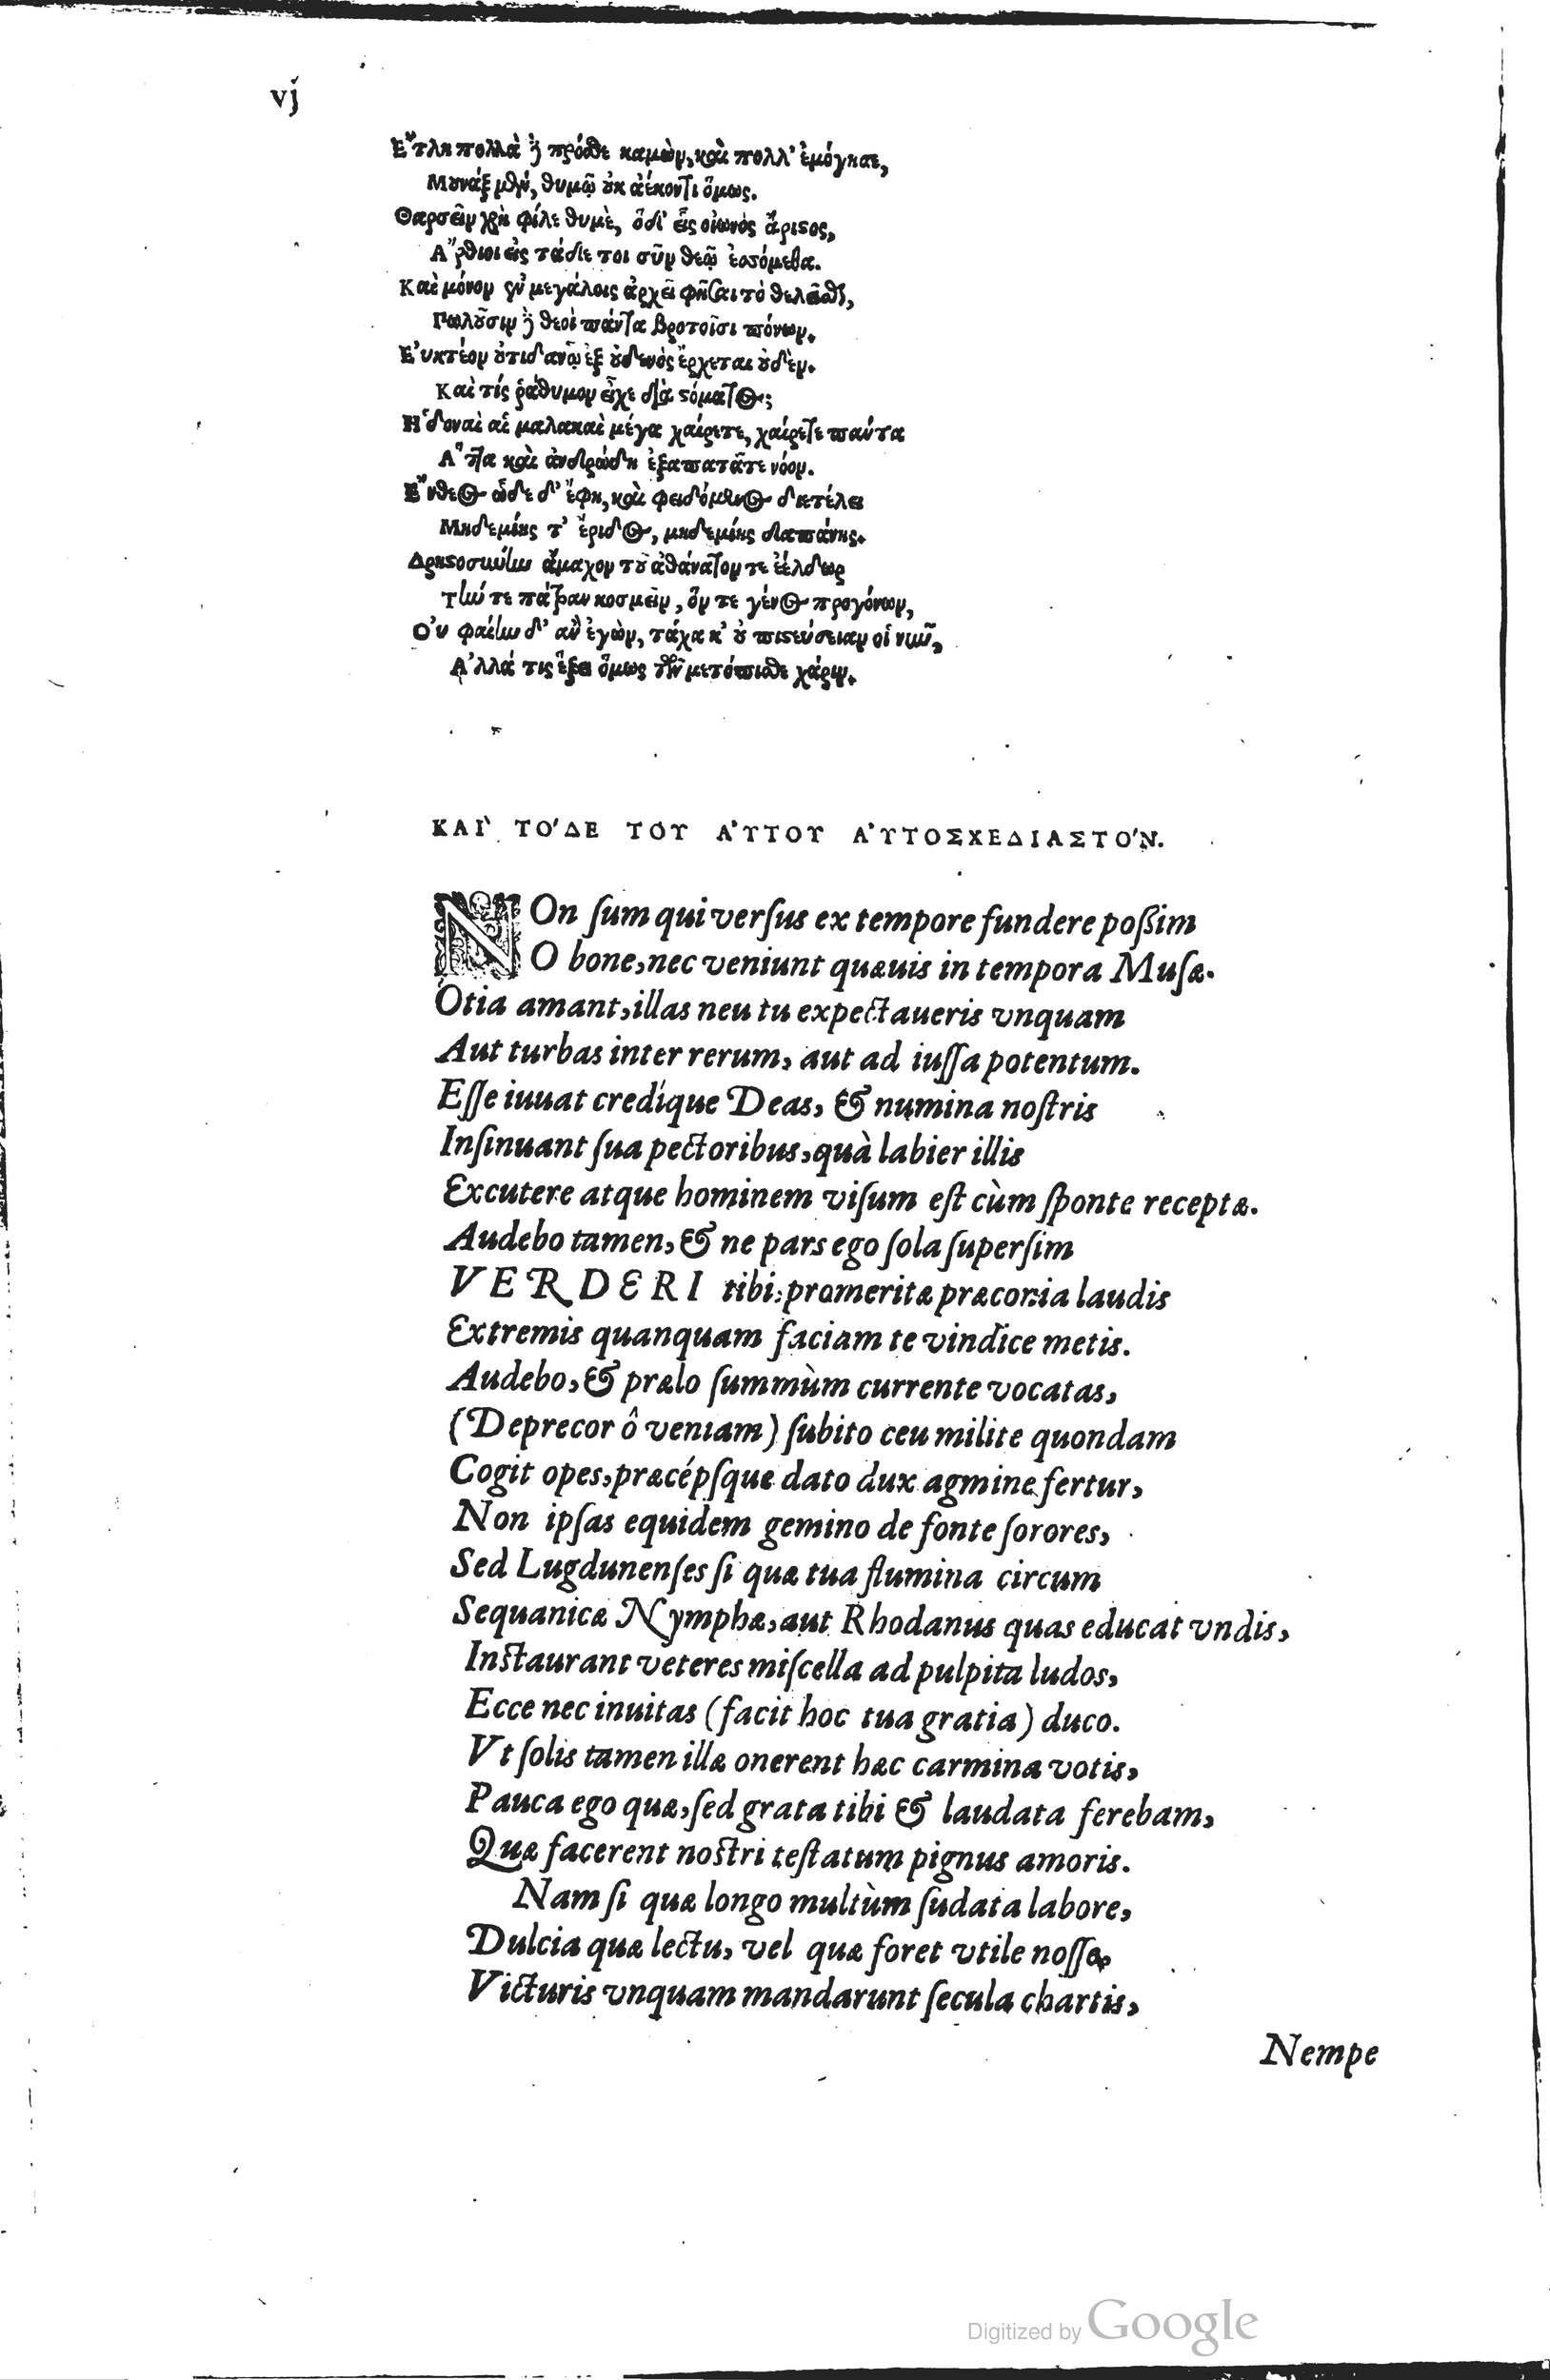 vj
Ε῎τλη πολλὰ ἢ πρόσθε καμὼν, καὶ πολλ' ἐμόγησε,
Μουνάξ μὲν, θυμῷ οὐκ ἀέκοντι ὅμως.
Θαρσεῖν χρὴ φίλε θυμὲ, ὅδ' εἷς οἰωνὸς ἄριστος,
Α῎ρθιοι εἰς τάδε τοι σῦν θεῷ ἑσόμεθα.
Καὶ μόνον ἐν μεγάλοις ἀρχεῖ φῆσαι τὸ θελεῖσθαι,
Πωλοῦσιν ἢ θεοὶ πάντα βροτοῖσι πόνων.
Ε'υκτέον οὐτιδανῷ ἐξ οὐδενὸς ἔρχεται οὐδέν.
Καὶ τίς ῥάθυμον εἶχε διὰ στόματος;
Η῾δοναὶ αἱ μαλακαὶ μέγα χαίρετε, χαίρετε πάντα
ἐξαπατᾶτε νόον.
Ε῎νθεος ὧδε δ' ἔφη, καὶ φειδόμενος διετέλει
Μηδεμίης τ' ἔριδος, μηδεμίης δαπάνης.
ἄμαχον τοῦ ἀθάνατον τε ἐέλδωρ
Τήν τε πάτραν κοσμεῖν, ὅν τε γένος προγόνων,
Ο'υ φαίην δ' ἂν ἐγὼν, τάχα κ' οὐ πιστεύσειαν οἱ νῦν,
Α'λλά τις ἕξει ὅμως τῶν μετόπισθε χάριν.
ΚΑΙ` ΤΟ'ΔΕ ΤΟΥ Α'ΥΤΟΥ Α'ΥΤΟΣΧΕΔΙΑΣΤΟ'Ν.
NOn ſum qui verſus ex tempore fundere poßim
O bone, nec veniunt quæuis in tempora Muſæ.
Otia amant, illas neu tu expectaueris vnquam
Aut turbas inter rerum, aut ad iuſſa potentum.
Eſſe iuuat credíque Deas, & numina noſtris
Inſinuant ſua pectoribus, quà labier illis
Excutere atque hominem viſum eſt cùm ſponte receptæ.
Audebo tamen, & ne pars ego ſola ſuperſim
VERDERI tibi, promeritæ præconia laudis
Extremis quanquam faciam te vindice metis.
Audebo, & prælo ſummùm currente vocatas,
(Deprecor ô veniam) ſubito ceu milite quondam
Cogit opes, præcépſque dato dux agmine fertur,
Non ipſas equidem gemino de fonte ſorores,
Sed Lugdunenſes ſi quæ tua flumina circum
Sequanicæ Nymphæ, aut Rhodanus quas educat vndis,
Inſtaurant veteres miſcella ad pulpita ludos,
Ecce nec inuitas (facit hoc tua gratia) duco.
Vt ſolis tamen illæ onerent hæc carmina votis,
Pauca ego quæ, ſed grata tibi & laudata ferebam,
Quæ facerent noſtri teſtatum pignus amoris.
Nam ſi quæ longo multùm ſudata labore,
Dulcia quæ lectu, vel quæ foret vtile noſſe,
Victuris vnquam mandarunt ſecula chartis,
Nempe
Digitized by Google